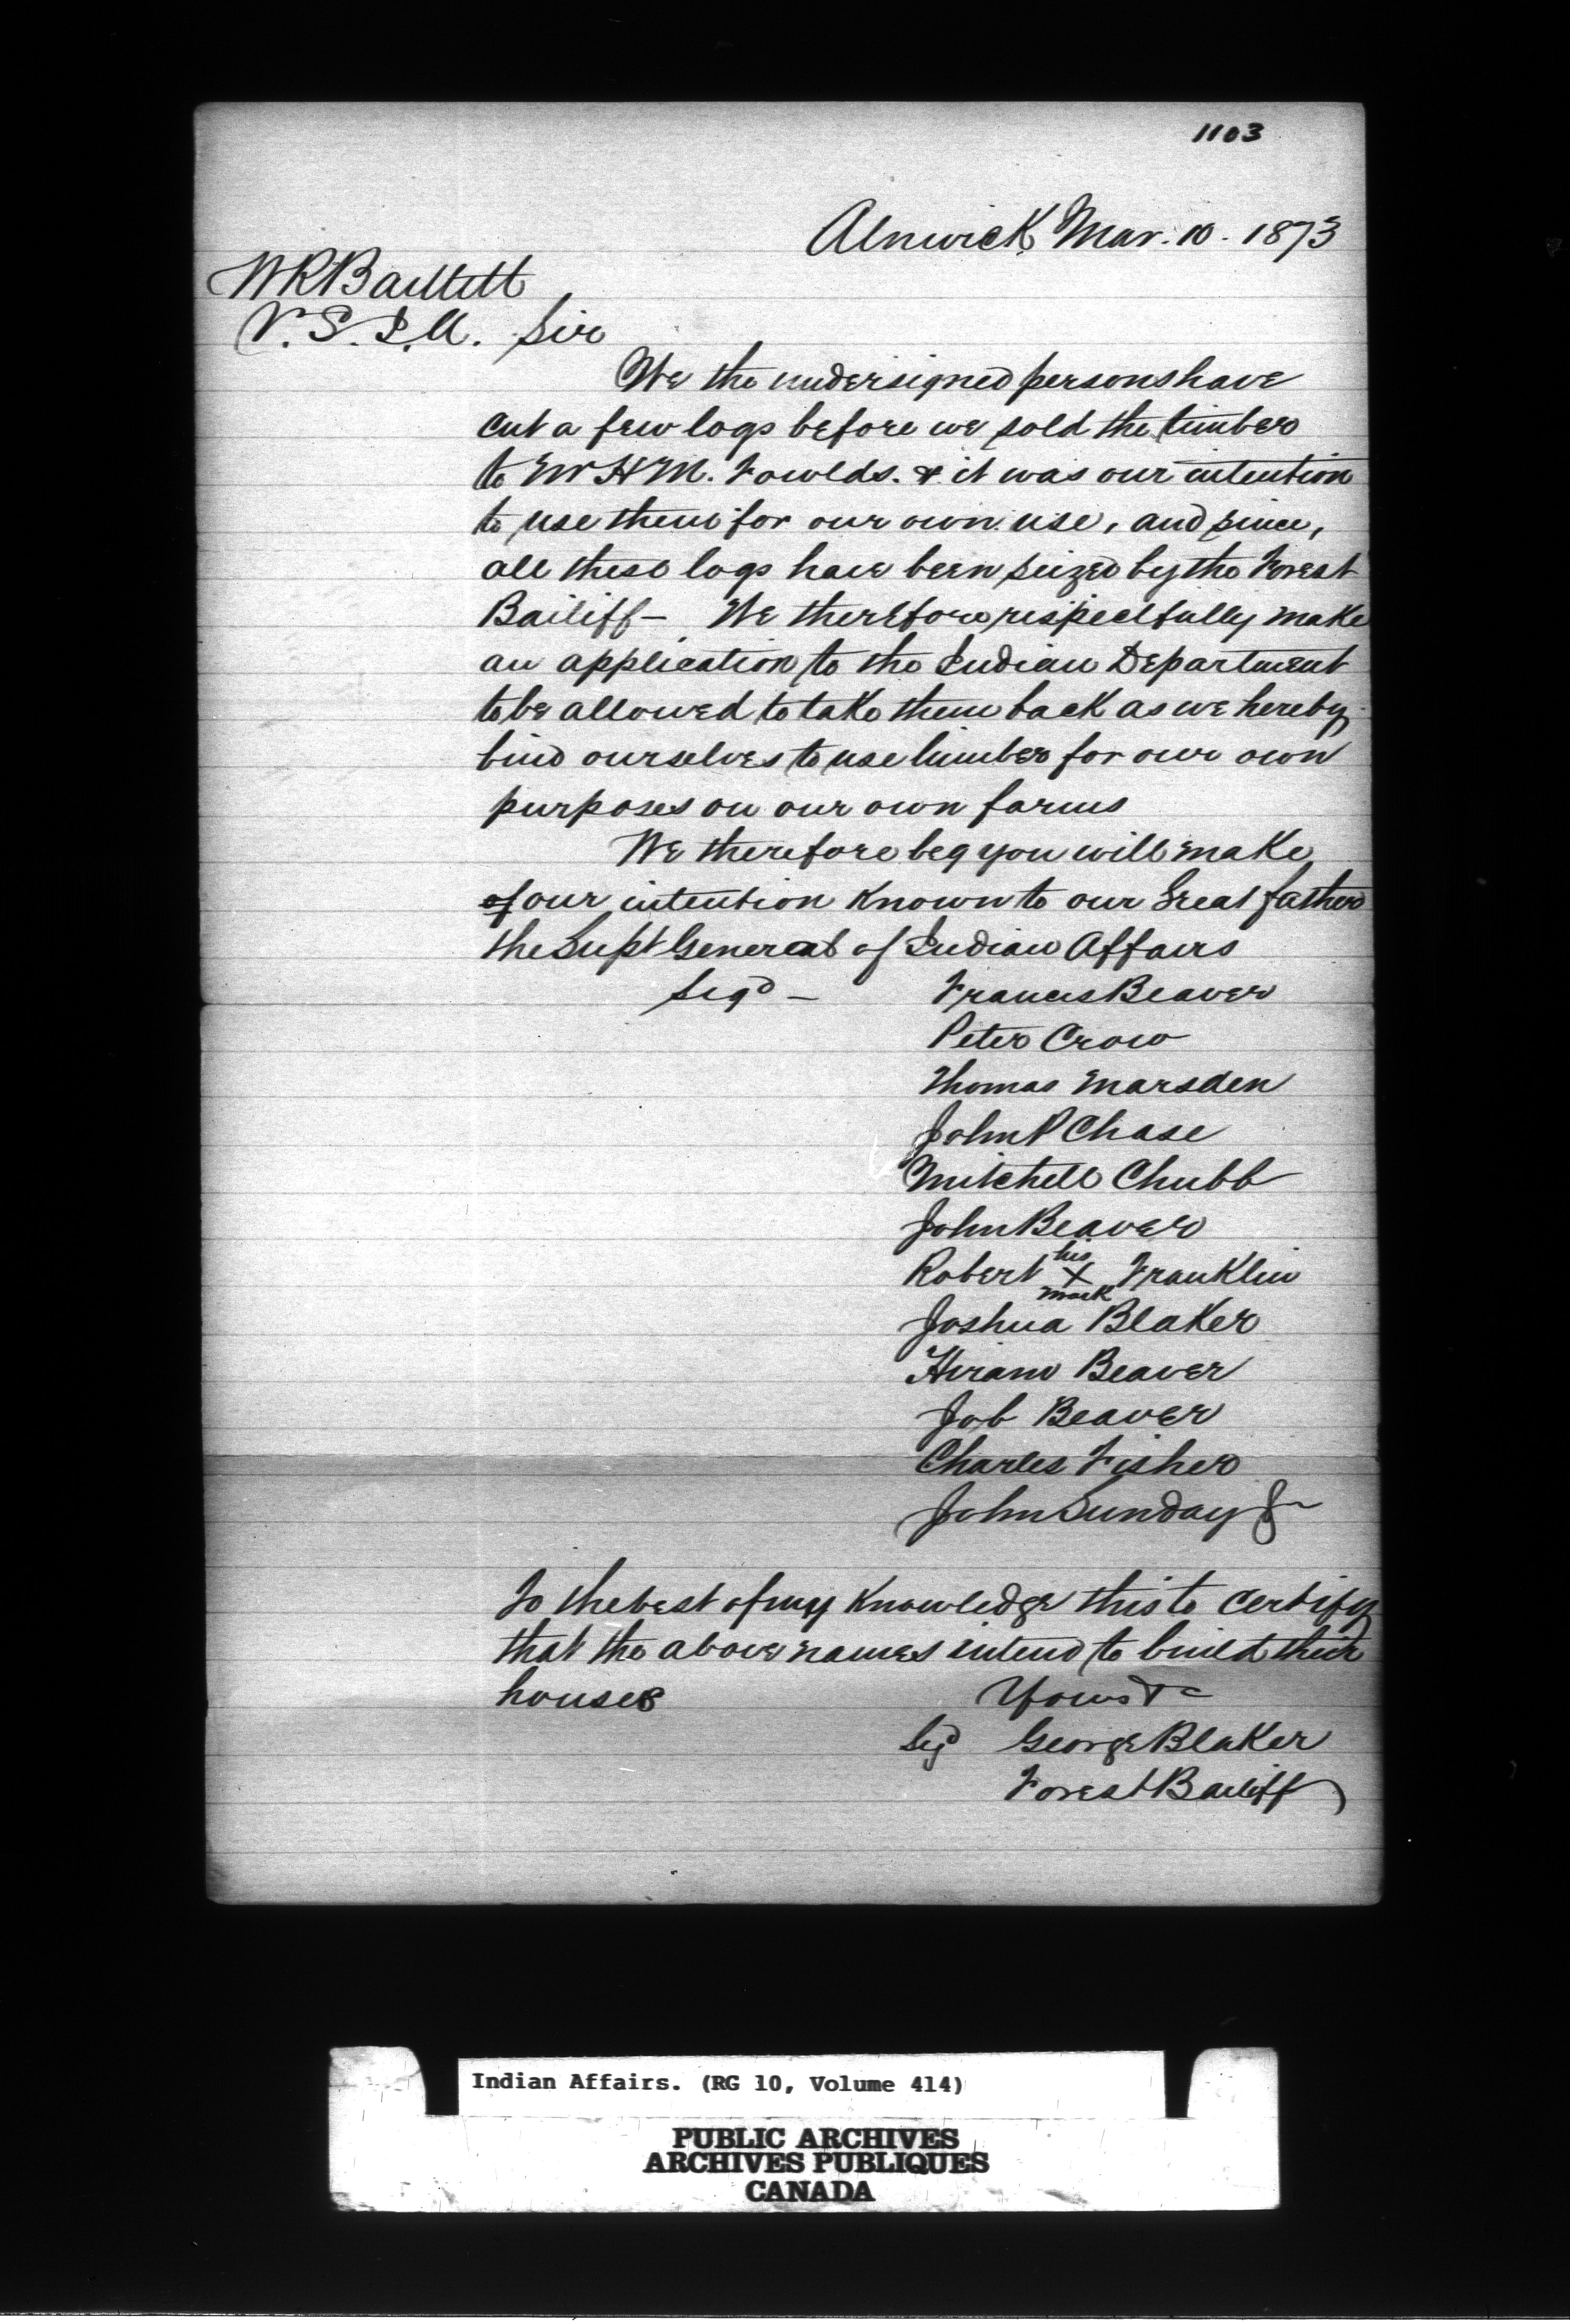 1103
Alnwick Mar. 10. 1873
WRBartlett
V. S. I. A. Sir
We the undersigned persons have
cut a few logs before we sold the timber
to Mr H M. Fowlds. & it was our intention
to use them for our own use, and since,
all these logs have been seized by the Forest
Bailiff— We therefore respectfully make
an application to the Indian Department
to be allowed to take them back as we hereby
bind ourselves to use lumber for our own
purposes on our own farms
We therefore beg you will make
of our intention known to our Great father
the Supt General of Indian Affairs
Sigd — Francis Beaver
Peter Crow
Thomas Marsden
John P Chase
Mitchell Chubb
John Beaver
Robert his X mark Franklin
Joshua Blaker
Hiram Beaver
Job Beaver
Charles Fisher
John Sunday Jr
To the best of my Knowledge this to certify
that the above names intend to build their
houses Yours &c
Sigd George Blaker
Forest Bailiff
Indian Affairs. (RG 10, Volume 414)
PUBLIC ARCHIVES
ARCHIVES PUBLIQUES
CANADA